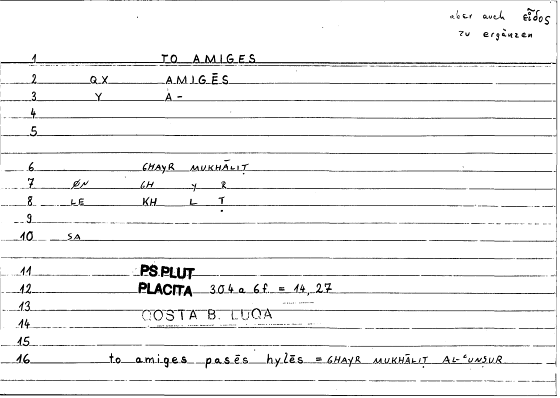 aber auch εἶδος
zu ergänzen
1 TO AMIGES
2 QX AMIGĒS
3 Y A-
4
5
6 GHAYR MUKHĀLIṬ
7 ØN GH Y R
8 LE KH L Ṭ
9
10 SA
11 PS.PLUT
12 PLACITA 304a 6f. = 14, 27
13
14 QOSTA B. LUQA
15
16 to amiges pasēs hylēs = GHAYR MUKHĀLIṬ AL-ʿUNṢUR